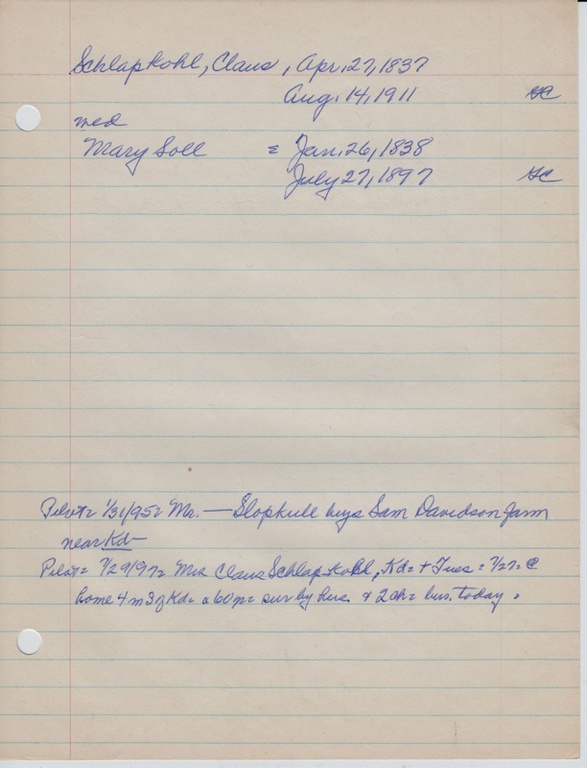 Schlapkohl, Claus, Apr. 27, 1837
Aug. 14, 1911
med
Mary Soll = Jan. 26, 1838
July 27, 1897
Pilot= 1/31/95= Mr. — Slopkull buys Sam Davidson farm
near Kd—
Pilot= 7/29/97= Mrs Claus Schlapkohl, Kd= + Tues = 7/27= @
home 4 m S of Kd= a 60 p= sur by hus. & 2 ch= bur. today.